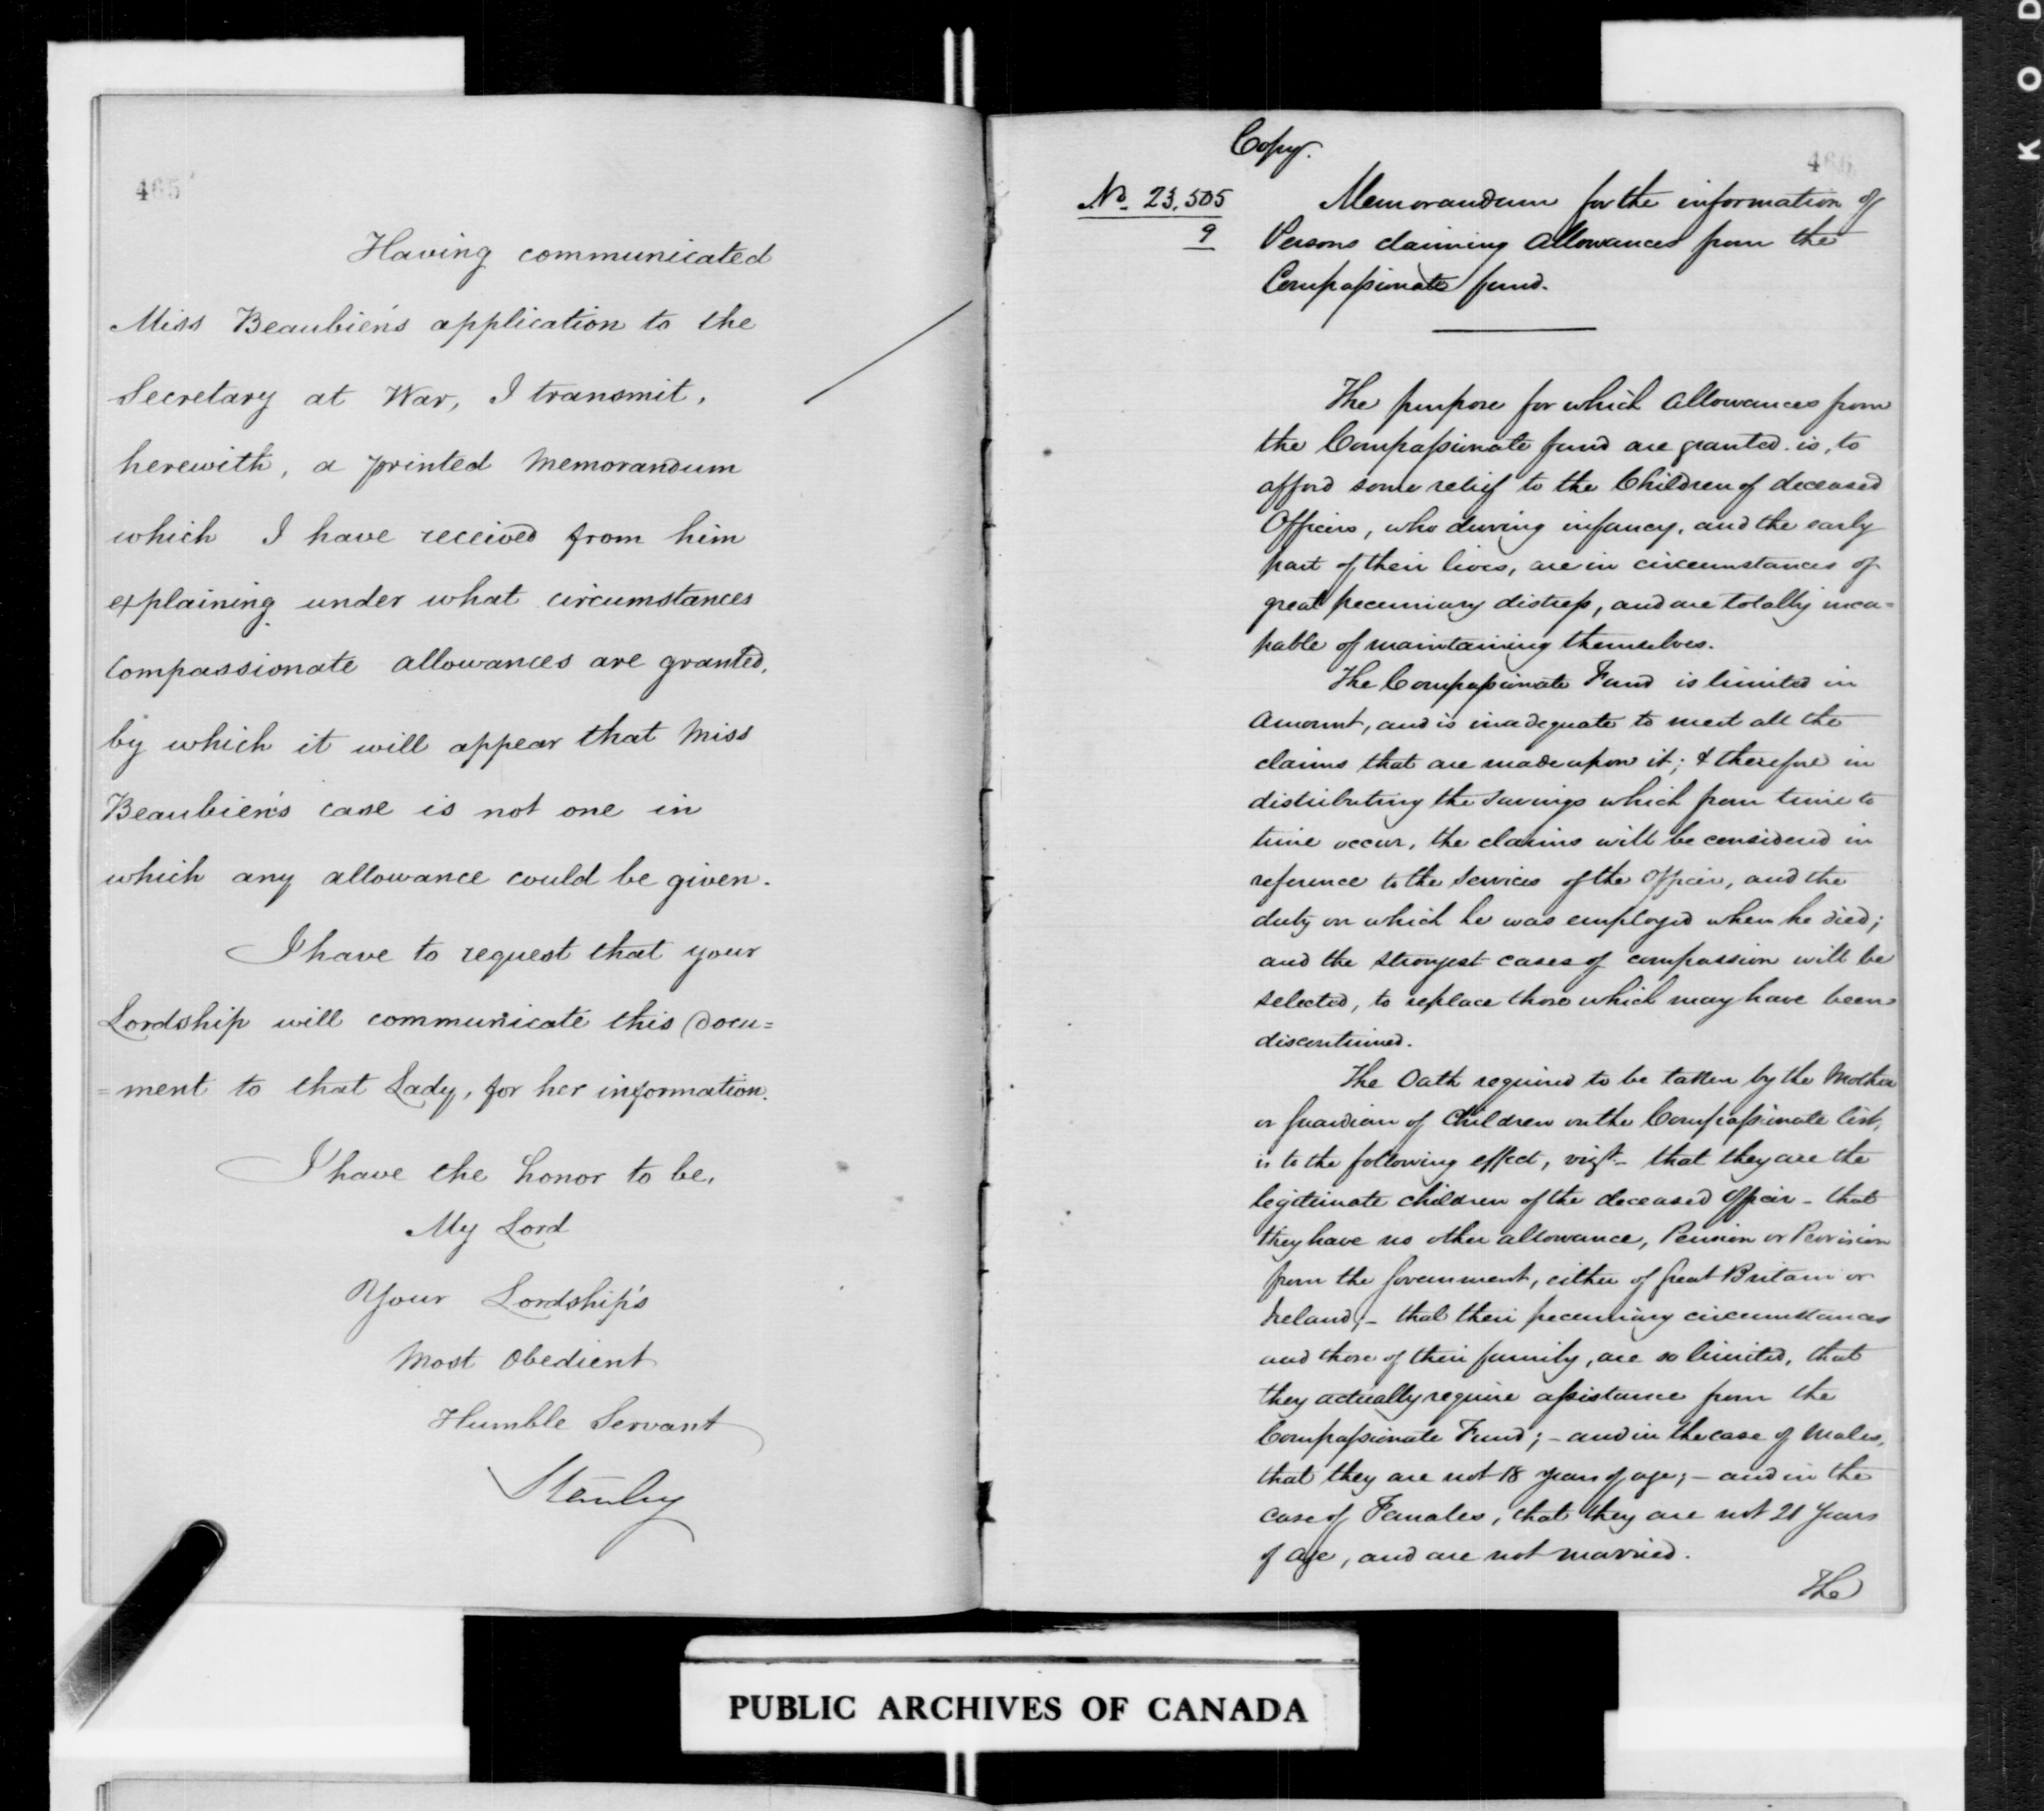 465
Having communicated
Miss Beaubien's application to the
Secretary at War, I transmit,
herewith, a printed Memorandum
which I have received from him
explaining under what circumstances
compassionate allowances are granted,
by which it will appear that Miss
Beaubien's case is not one in
which any allowance could be given.
I have to request that your
Lordship will communicate this Docu=
=ment to that Lady, for her information.
I have the honor to be,
My Lord
Your Lordship's
Most Obedient
Humble Servant
Stanley
Copy.
466
No. 23,505
9
Memorandum for the information of
Persons claiming Allowances from the
Compassionate fund.
The purpose for which Allowances from
the Compassionate fund are granted is, to
afford some relief to the Children of deceased
Officers, who during infancy, and the early
part of their lives, are in circumstances of
great pecuniary distress, and are totally inca=
pable of maintaining themselves.
The Compassionate Fund is limited in
Amount, and is inadequate to meet all the
claims that are made upon it; & therefore in
distributing the Savings which from time to
time occur, the claims will be considered in
reference to the Services of the Officer, and the
duty on which he was employed when he died;
and the strongest cases of compassion will be
selected, to replace those which may have been
discontinued.
The Oath required to be taken by the Mother
or Guardian of Children on the Compassionate list,
is to the following effect, vizt.- that they are the
legitimate children of the deceased Officer - that
they have no other allowance, Pension or Provision
from the Government, either of Great Britain or
Ireland;- that their pecuniary circumstances
and those of their family, are so limited, that
they actually require assistance from the
Compassionate Fund; - and in the case of Males,
that they are not 18 years of age; - and in the
case of Females, that they are not 21 Years
of Age, and are not married.
The
PUBLIC ARCHIVES OF CANADA
K O D